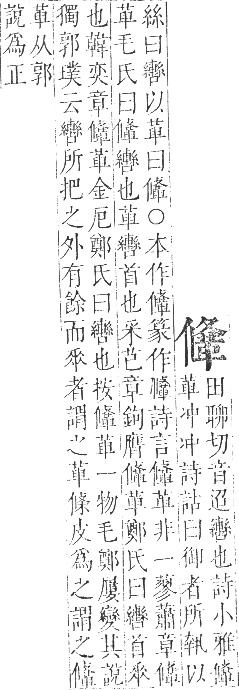 鞗
田聊切音迢轡也詩小雅鞗
革冲冲詩詁曰御者所執以
絲曰轡以革曰鞗○本作鞗篆作鞗詩言鞗革非一蓼蕭章鞗
革毛氏曰鞗轡也革轡首也采芑章鉤膺鞗革鄭氏曰轡首垂
也韓奕章鞗革金厄鄭氏曰轡也按鞗革一物毛鄭屢變其說
獨郭璞云轡所把之外有餘而垂者謂之革條皮爲之謂之鞗
革从郭
說爲正